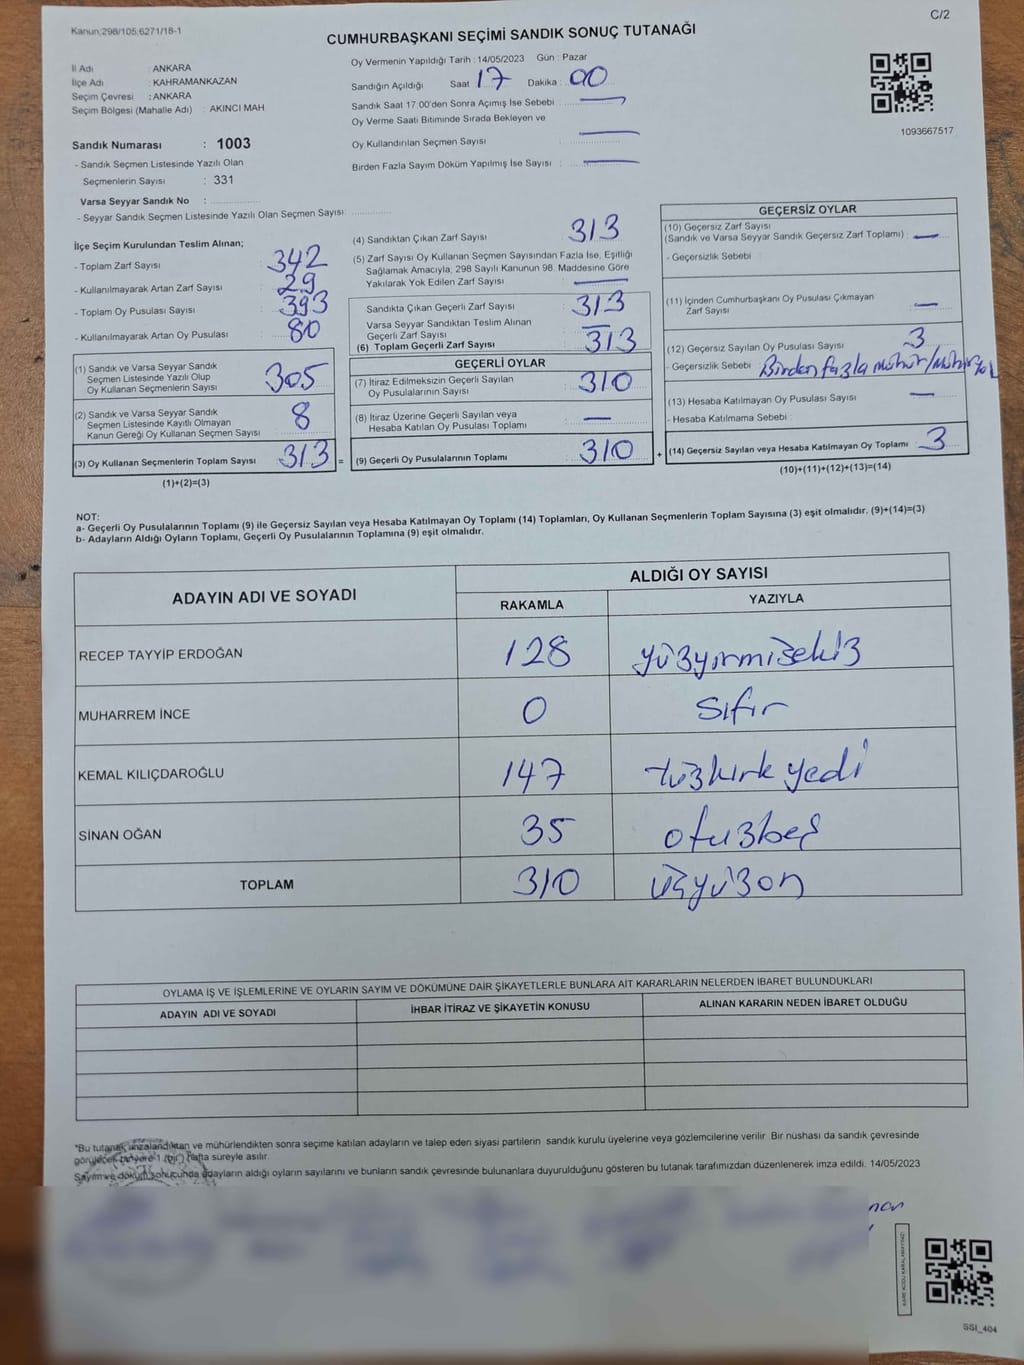 Kanun;298/105,6271/18-1
C/2
CUMHURBAŞKANI SEÇİMİ SANDIK SONUÇ TUTANAĞI
İl Adı : ANKARA
İlçe Adı : KAHRAMANKAZAN
Seçim Çevresi : ANKARA
Seçim Bölgesi (Mahalle Adı) : AKINCI MAH
Sandık Numarası : 1003
- Sandık Seçmen Listesinde Yazılı Olan
Seçmenlerin Sayısı : 331
Varsa Seyyar Sandık No :
- Seyyar Sandık Seçmen Listesinde Yazılı Olan Seçmen Sayısı:
Oy Vermenin Yapıldığı Tarih : 14/05/2023 Gün : Pazar
Sandığın Açıldığı Saat 17 Dakika : 00
Sandık Saat 17:00'den Sonra Açımış İse Sebebi : —
Oy Verme Saati Bitiminde Sırada Bekleyen ve
Oy Kullandırılan Seçmen Sayısı : —
Birden Fazla Sayım Döküm Yapılmış İse Sayısı : —
1093667517
İlçe Seçim Kurulundan Teslim Alınan;
- Toplam Zarf Sayısı 342
- Kullanılmayarak Artan Zarf Sayısı 29
- Toplam Oy Pusulası Sayısı 393
- Kullanılmayarak Artan Oy Pusulası 80
(1) Sandık ve Varsa Seyyar Sandık
Seçmen Listesinde Yazılı Olup
Oy Kullanan Seçmenlerin Sayısı 305
(2) Sandık ve Varsa Seyyar Sandık
Seçmen Listesinde Kayıtlı Olmayan
Kanun Gereği Oy Kullanan Seçmen Sayısı 8
(3) Oy Kullanan Seçmenlerin Toplam Sayısı 313 =
(1)+(2)=(3)
(4) Sandıktan Çıkan Zarf Sayısı 313
(5) Zarf Sayısı Oy Kullanan Seçmen Sayısından Fazla İse, Eşitliği
Sağlamak Amacıyla, 298 Sayılı Kanunun 98. Maddesine Göre
Yakılarak Yok Edilen Zarf Sayısı —
Sandıkta Çıkan Geçerli Zarf Sayısı 313
Varsa Seyyar Sandıktan Teslim Alınan
Geçerli Zarf Sayısı —
(6) Toplam Geçerli Zarf Sayısı 313
GEÇERLİ OYLAR
(7) İtiraz Edilmeksizin Geçerli Sayılan
Oy Pusulalarının Sayısı 310
(8) İtiraz Üzerine Geçerli Sayılan veya
Hesaba Katılan Oy Pusulası Toplamı —
(9) Geçerli Oy Pusulalarının Toplamı 310 +
GEÇERSİZ OYLAR
(10) Geçersiz Zarf Sayısı
(Sandık ve Varsa Seyyar Sandık Geçersiz Zarf Toplamı) : —
- Geçersizlik Sebebi
(11) İçinden Cumhurbaşkanı Oy Pusulası Çıkmayan
Zarf Sayısı —
(12) Geçersiz Sayılan Oy Pusulası Sayısı 3
- Geçersizlik Sebebi Birden fazla mühür/
(13) Hesaba Katılmayan Oy Pusulası Sayısı —
- Hesaba Katılmama Sebebi :
(14) Geçersiz Sayılan veya Hesaba Katılmayan Oy Toplamı 3
(10)+(11)+(12)+(13)=(14)
NOT:
a- Geçerli Oy Pusulalarının Toplamı (9) ile Geçersiz Sayılan veya Hesaba Katılmayan Oy Toplamı (14) Toplamları, Oy Kullanan Seçmenlerin Toplam Sayısına (3) eşit olmalıdır. (9)+(14)=(3)
b- Adayların Aldığı Oyların Toplamı, Geçerli Oy Pusulalarının Toplamına (9) eşit olmalıdır.
ADAYIN ADI VE SOYADI
ALDIĞI OY SAYISI
RAKAMLA YAZIYLA
RECEP TAYYİP ERDOĞAN 128 yüzyirmisekiz
MUHARREM İNCE 0 sıfır
KEMAL KILIÇDAROĞLU 147 yüzkırk yedi
SİNAN OĞAN 35 otuzbeş
TOPLAM 310 üçyüzon
OYLAMA İŞ VE İŞLEMLERİNE VE OYLARIN SAYIM VE DÖKÜMÜNE DAİR ŞİKAYETLERLE BUNLARA AİT KARARLARIN NELERDEN İBARET BULUNDUKLARI
ADAYIN ADI VE SOYADI İHBAR İTİRAZ VE ŞİKAYETİN KONUSU ALINAN KARARIN NEDEN İBARET OLDUĞU
*Bu tutanak imzalandıktan ve mühürlendikten sonra seçime katılan adayların ve talep eden siyasi partilerin sandık kurulu üyelerine veya gözlemcilerine verilir. Bir nüshası da sandık çevresinde
görülecek bir yere 1 (bir) hafta süreyle asılır.
Sayım ve döküm sonucunda adayların aldığı oyların sayılarını ve bunların sandık çevresinde bulunanlara duyurulduğunu gösteren bu tutanak tarafımızdan düzenlenerek imza edildi. 14/05/2023
KARE KODU KARALAMAYINIZ!
SSI_404